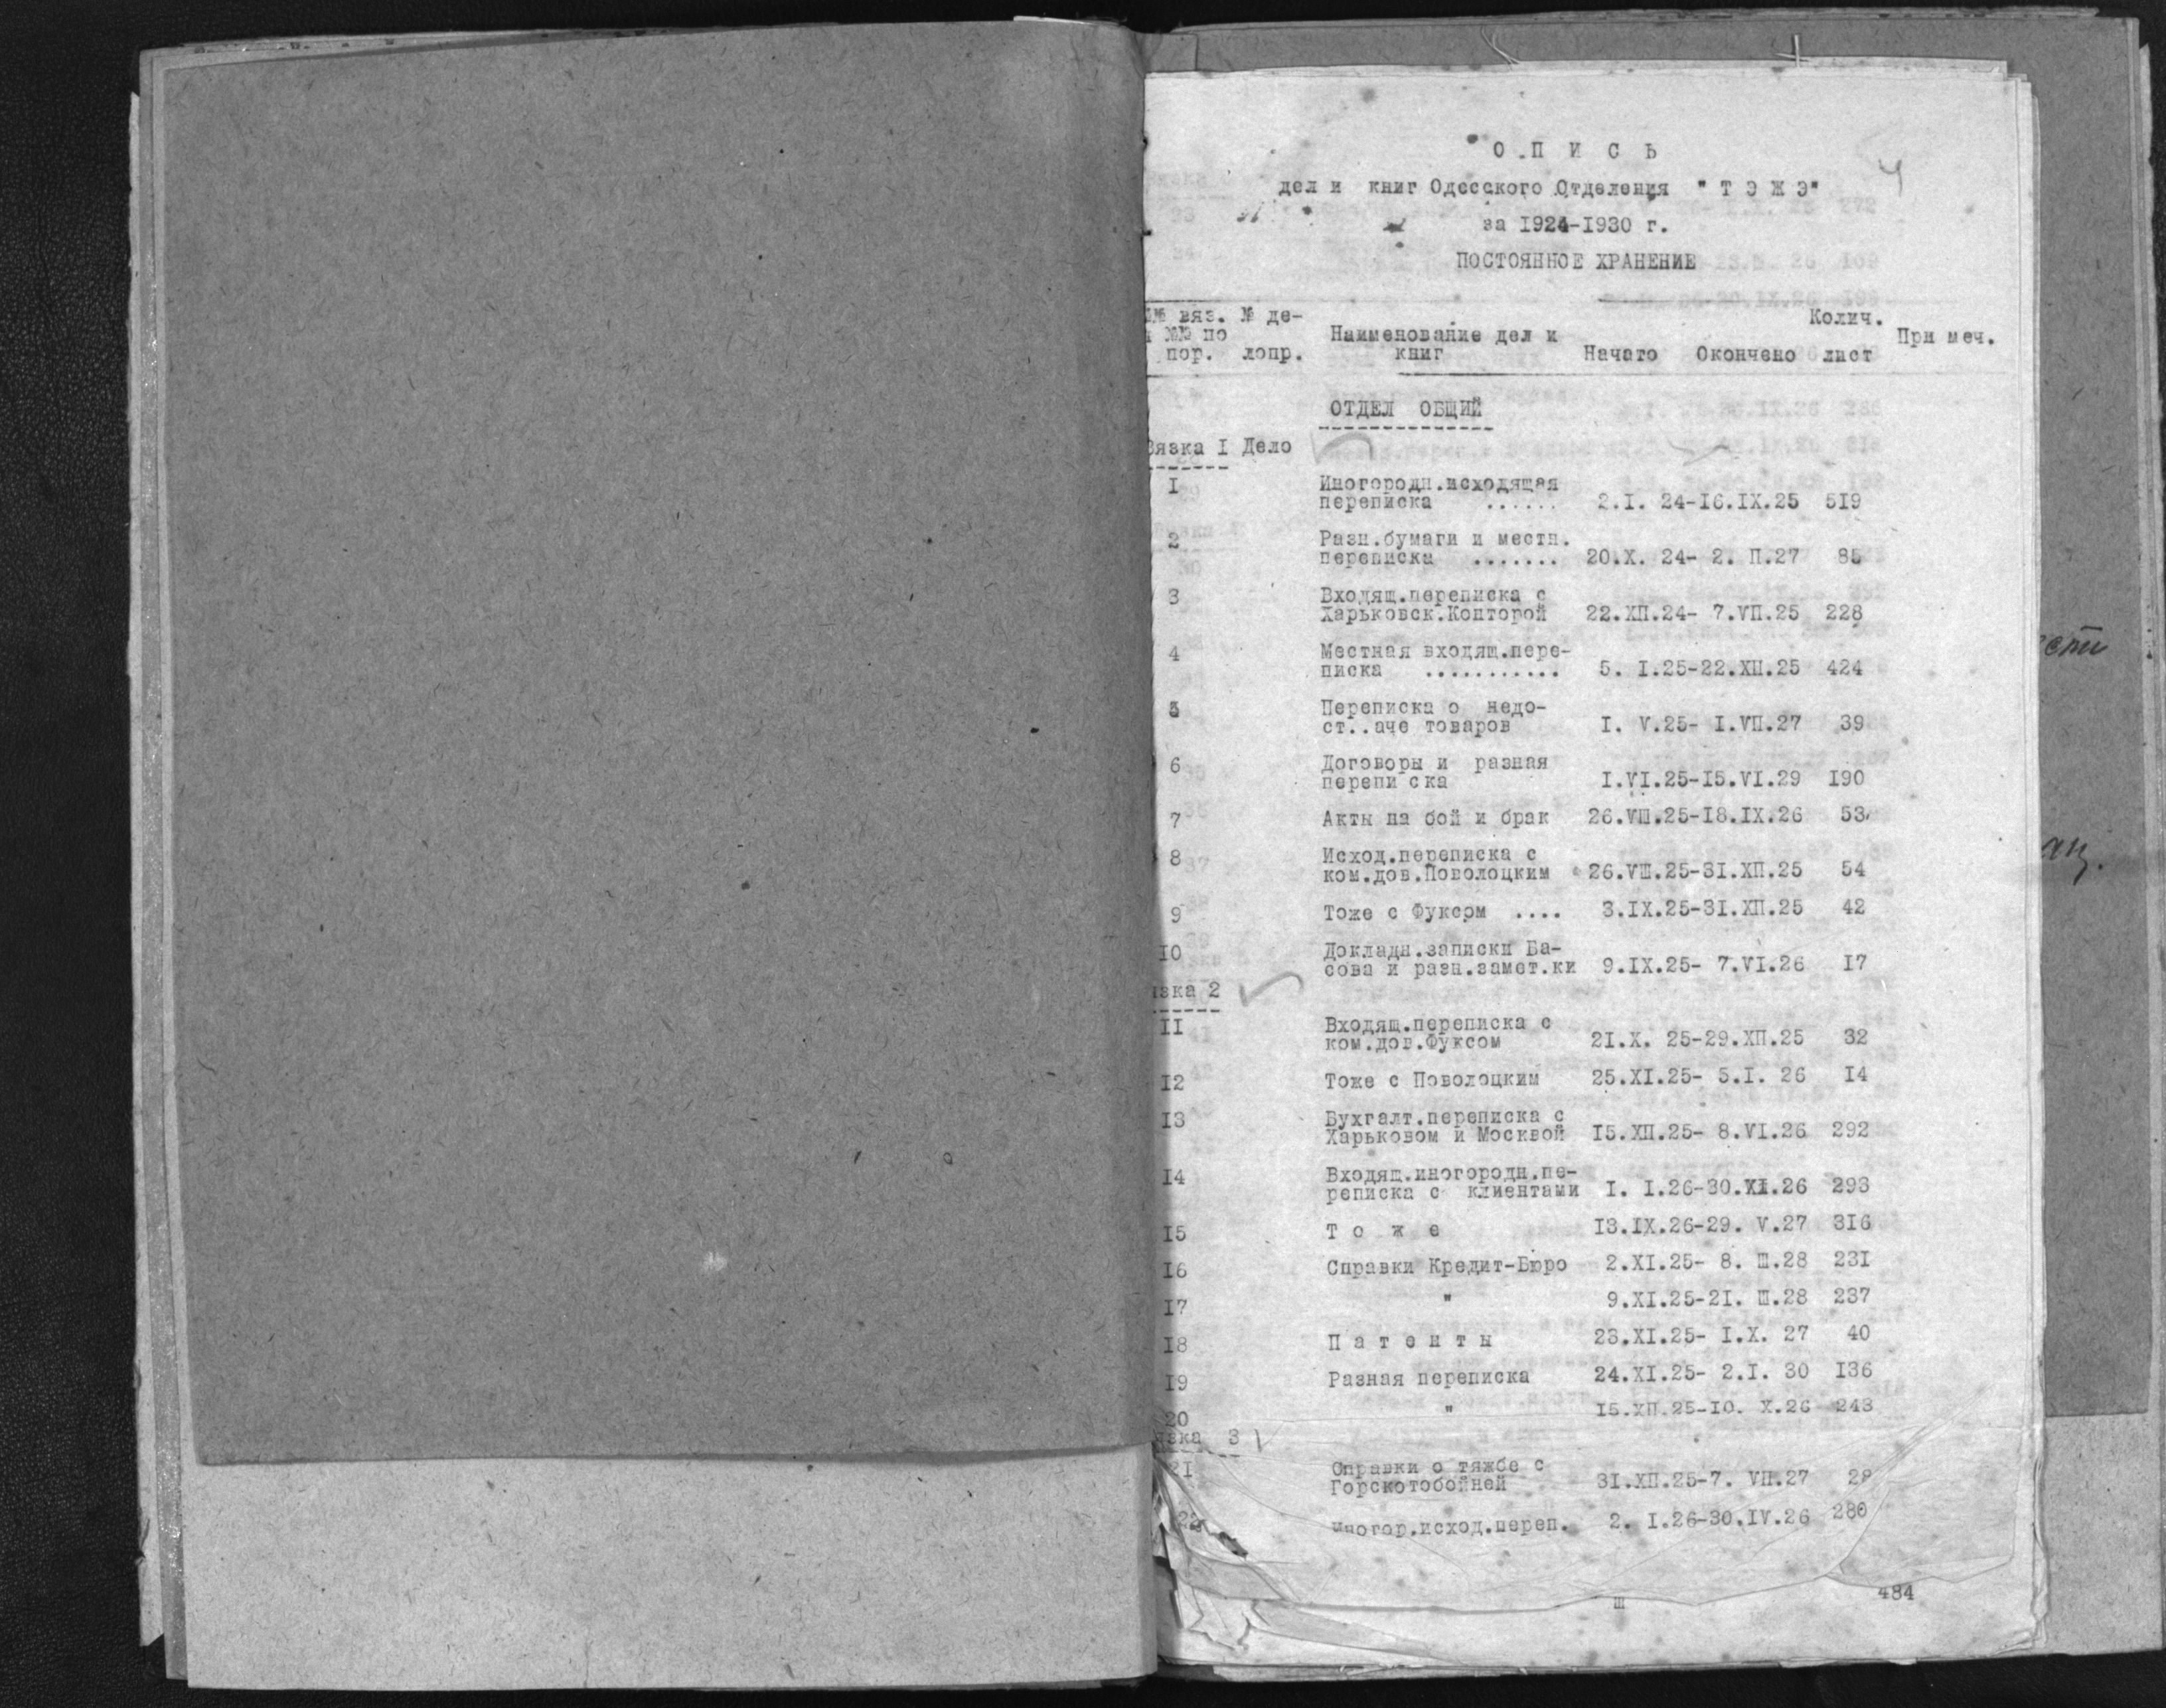 О П И С Ь
4
дел и книг Одесского Отделения "Т Э Ж Э"
за 1924-1930 г.
ПОСТОЯННОЕ ХРАНЕНИЕ
№№ вяз. № де- Колич.
№№ по Наименование дел и При меч.
пор. лопр. книг Начато Окончено лист
ОТДЕЛ ОБЩИЙ
Вязка I Дело
I Иногородн.исходящая
переписка ...... 2.I. 24-I6.IX.25 5I9
2 Разн.бумаги и местн.
переписка ....... 20.X. 24- 2. П.27 85
3 Входящ.переписка с
Харьковск.Конторой 22.ХП.24- 7.УП.25 228
4 Местная входящ.пере-
писка ........... 5. I.25-22.ХП.25 424
5 Переписка о недо-
ст..аче товаров I. V.25- I.УП.27 39
6 Договоры и разная
переписка I.VI.25-I5.VI.29 I90
7 Акты на бой и брак 26.УШ.25-I8.IX.26 53
8 Исход.переписка с
ком.дов.Поволоцким 26.УШ.25-3I.ХП.25 54
9 Тоже с Фуксом .... 3.IX.25-3I.ХП.25 42
I0 Докладн.записки Ба-
сова и разн.замет.ки 9.IX.25- 7.VI.26 I7
язка 2
II Входящ.переписка с
ком.дов.Фуксом 2I.X. 25-29.ХП.25 32
I2 Тоже с Поволоцким 25.XI.25- 5.I. 26 I4
I3 Бухгалт.переписка с
Харьковом и Москвой I5.ХП.25- 8.VI.26 292
I4 Входящ.иногородн.пе-
реписка с клиентами I. I.26-30.XI.26 293
I5 Т о ж е I3.IX.26-29. V.27 3I6
I6 Справки Кредит-Бюро 2.XI.25- 8. Ш.28 23I
I7 " 9.XI.25-2I. Ш.28 237
I8 П а т е н т ы 23.XI.25- I.X. 27 40
I9 Разная переписка 24.XI.25- 2.I. 30 I36
20 " I5.ХП.25-I0. X.26 243
язка 3
2I Справки о тяжбе с
Горскотобойней 3I.ХП.25-7. УП.27 28
22 Иногор.исход.переп. 2. I.26-30.IV.26 280
Ш 484
ести